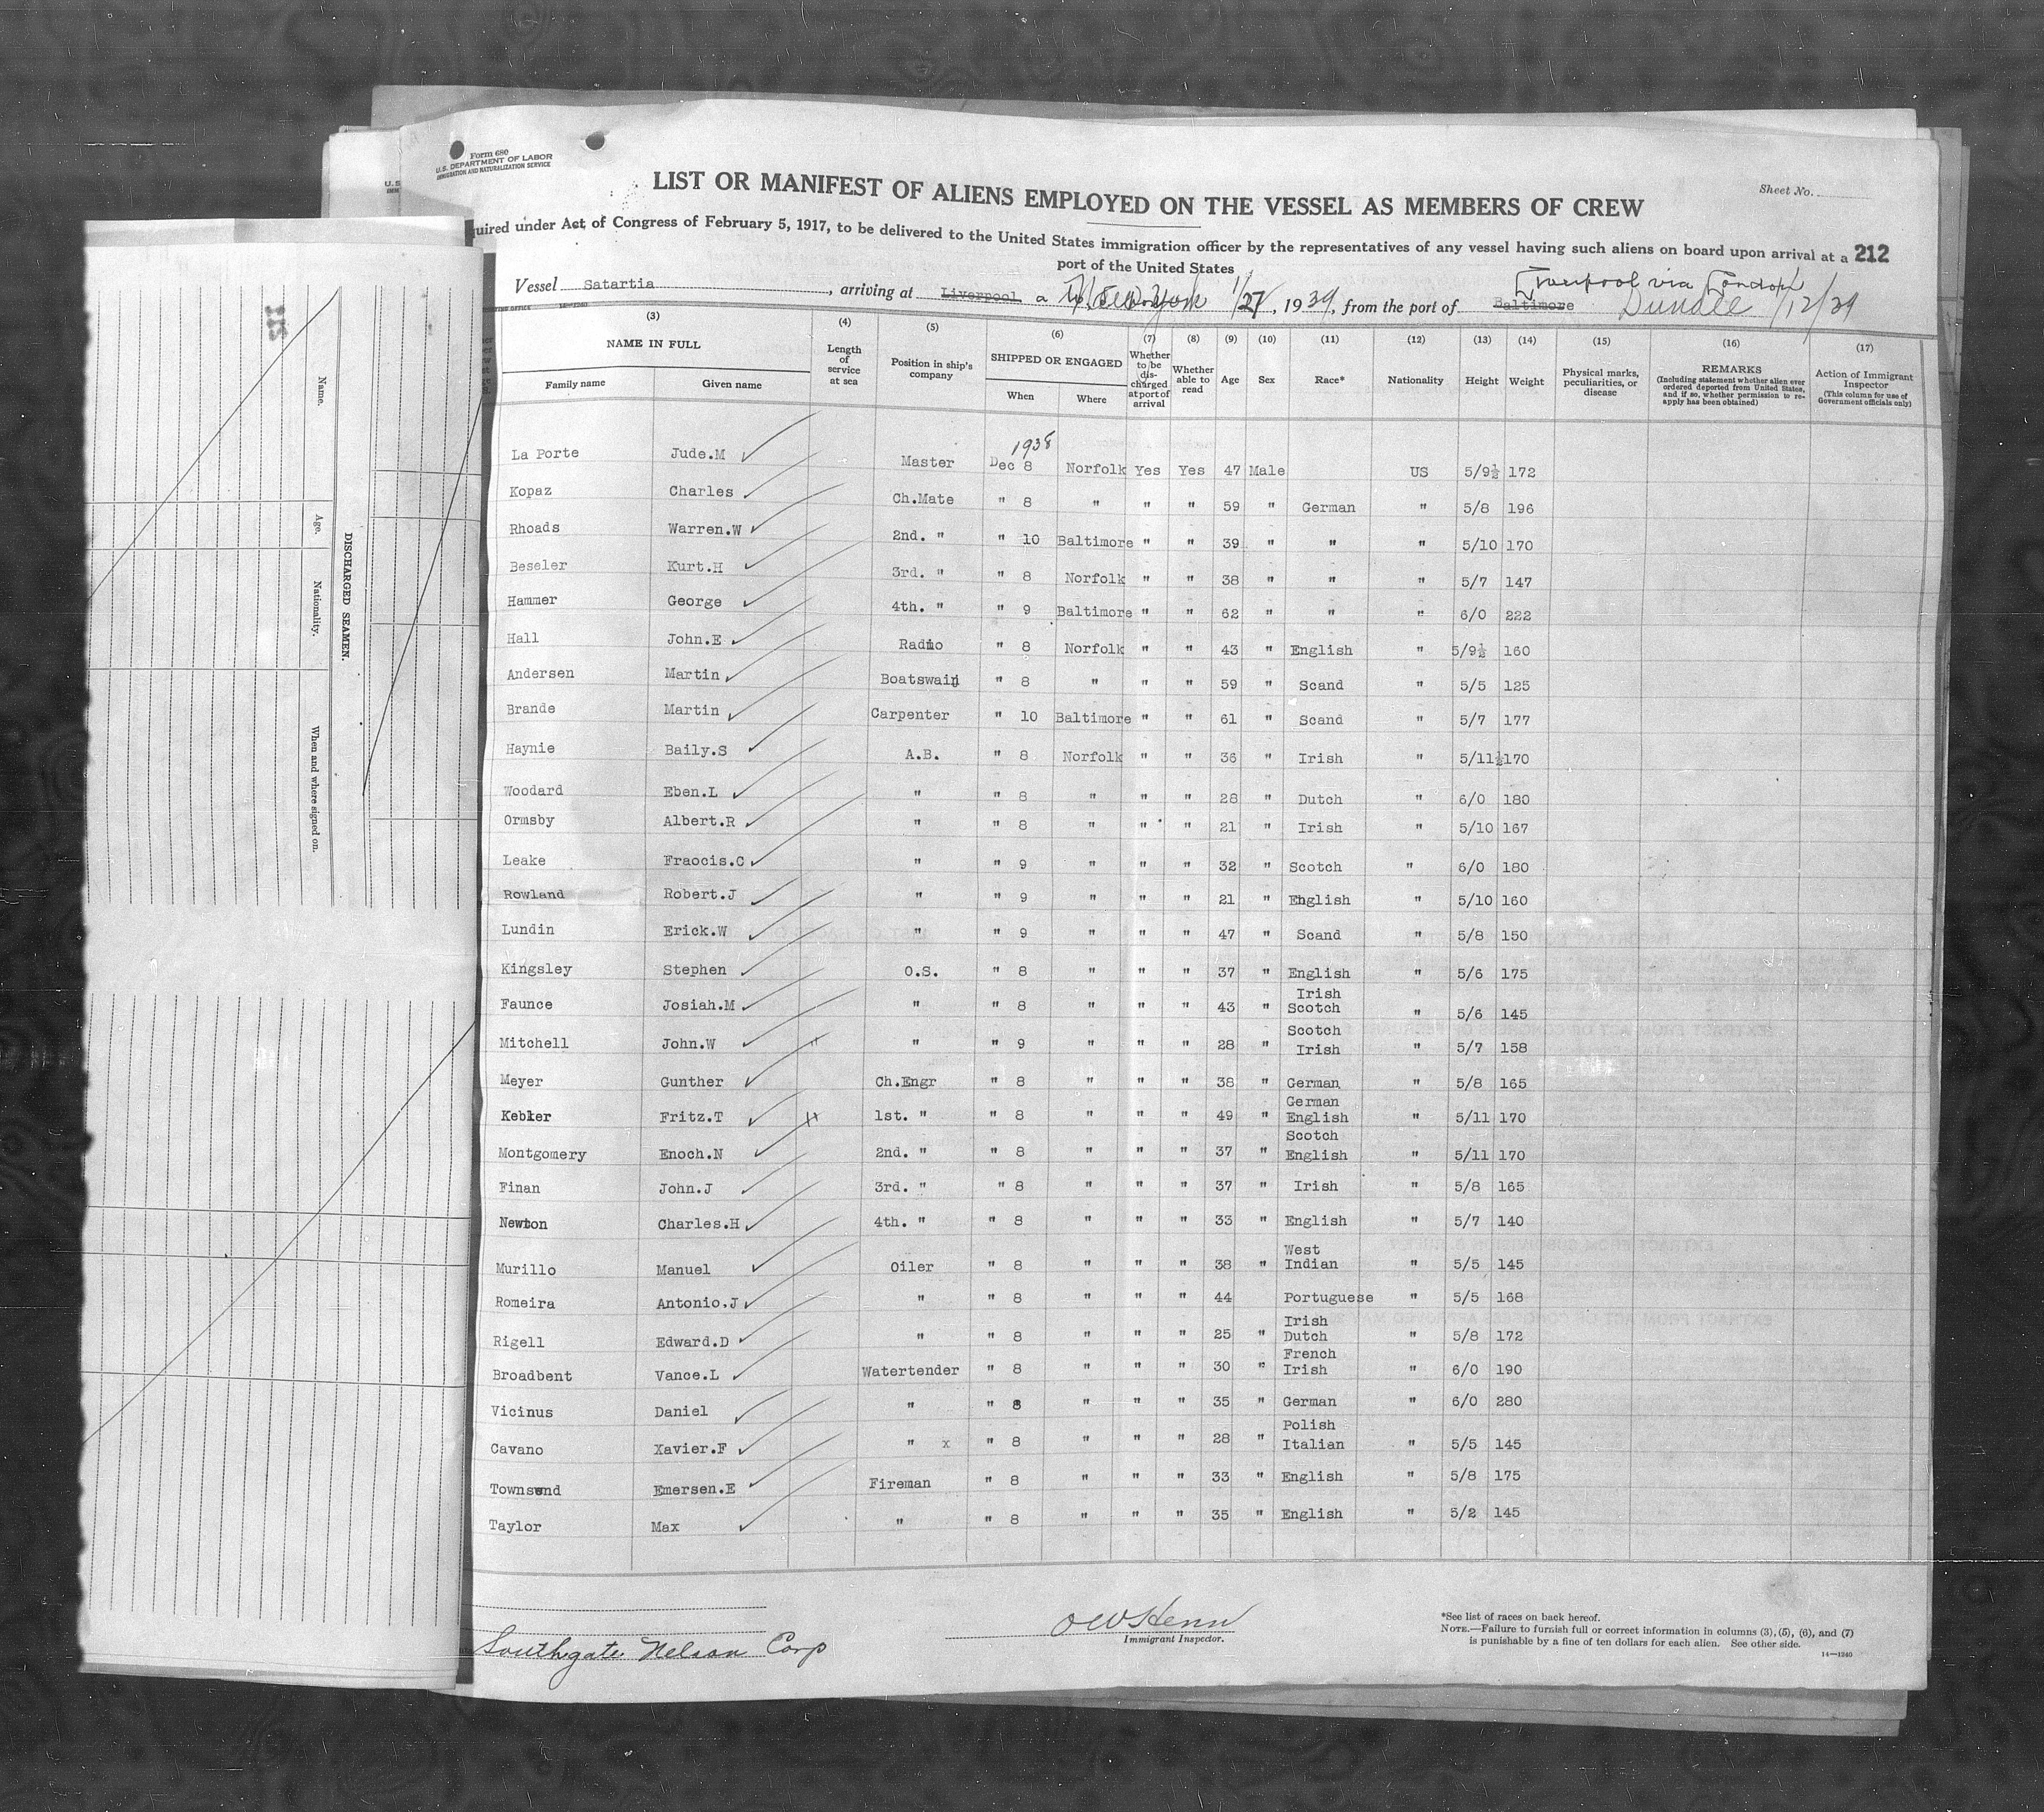 Form 680
U.S. DEPARTMENT OF LABOR
IMMIGRATION AND NATURALIZATION SERVICE
LIST OR MANIFEST OF ALIENS EMPLOYED ON THE VESSEL AS MEMBERS OF CREW
Sheet No.
quired under Act of Congress of February 5, 1917, to be delivered to the United States immigration officer by the representatives of any vessel having such aliens on board upon arrival at a 212
port of the United States
Liverpool via London
Vessel Satartia, arriving at Liverpool New York 1/27, 1939, from the port of Baltimore Dundee 1/12/39
(3) (4) (5) (6) (7) (8) (9) (10) (11) (12) (13) (14) (15) (16) (17)
NAME IN FULL Length of service at sea Position in ship's company SHIPPED OR ENGAGED Whether to be discharged at port of arrival Whether able to read Age Sex Race* Nationality Height Weight Physical marks, peculiarities, or disease REMARKS (Including statement whether alien ever ordered deported from United States, and if so, whether permission to re-apply has been obtained) Action of Immigrant Inspector (This column for use of Government officials only)
Family name Given name When Where
1938
La Porte Jude.M Master Dec 8 Norfolk Yes Yes 47 Male US 5/9½ 172
Kopaz Charles Ch.Mate " 8 " " " 59 " German " 5/8 196
Rhoads Warren.W 2nd. " " 10 Baltimore " " 39 " " " 5/10 170
Beseler Kurt.H 3rd. " " 8 Norfolk " " 38 " " " 5/7 147
Hammer George 4th. " " 9 Baltimore " " 62 " " " 6/0 222
Hall John.E Radio " 8 Norfolk " " 43 " English " 5/9½ 160
Andersen Martin Boatswain " 8 " " " 59 " Scand " 5/5 125
Brande Martin Carpenter " 10 Baltimore " " 61 " Scand " 5/7 177
Haynie Baily.S A.B. " 8 Norfolk " " 36 " Irish " 5/11½ 170
Woodard Eben.L " " 8 " " " 28 " Dutch " 6/0 180
Ormsby Albert.R " " 8 " " " 21 " Irish " 5/10 167
Leake Fraocis.C " " 9 " " " 32 " Scotch " 6/0 180
Rowland Robert.J " " 9 " " " 21 " English " 5/10 160
Lundin Erick.W " " 9 " " " 47 " Scand " 5/8 150
Kingsley Stephen O.S. " 8 " " " 37 " English " 5/6 175
Faunce Josiah.M " " 8 " " " 43 " Irish Scotch " 5/6 145
Mitchell John.W " " 9 " " " 28 " Scotch Irish " 5/7 158
Meyer Gunther Ch.Engr " 8 " " " 38 " German " 5/8 165
Kebler Fritz.T 1st. " " 8 " " " 49 " German English " 5/11 170
Montgomery Enoch.N 2nd. " " 8 " " " 37 " Scotch English " 5/11 170
Finan John.J 3rd. " " 8 " " " 37 " Irish " 5/8 165
Newton Charles.H 4th. " " 8 " " " 33 " English " 5/7 140
Murillo Manuel Oiler " 8 " " " 38 " West Indian " 5/5 145
Romeira Antonio.J " " 8 " " " 44 Portuguese " 5/5 168
Rigell Edward.D " " 8 " " " 25 " Irish Dutch " 5/8 172
Broadbent Vance.L Watertender " 8 " " " 30 " French Irish " 6/0 190
Vicinus Daniel " " 8 " " " 35 " German " 6/0 280
Cavano Xavier.F " x " 8 " " " 28 " Polish Italian " 5/5 145
Townsend Emersen.E Fireman " 8 " " " 33 " English " 5/8 175
Taylor Max " " 8 " " " 35 " English " 5/2 145
Southgate Nelson Corp
O W Henn
Immigrant Inspector.
*See list of races on back hereof.
NOTE.—Failure to furnish full or correct information in columns (3), (5), (6), and (7)
is punishable by a fine of ten dollars for each alien. See other side.
14—1240
DISCHARGED SEAMEN.
Name. Age. Nationality. When and where signed on.